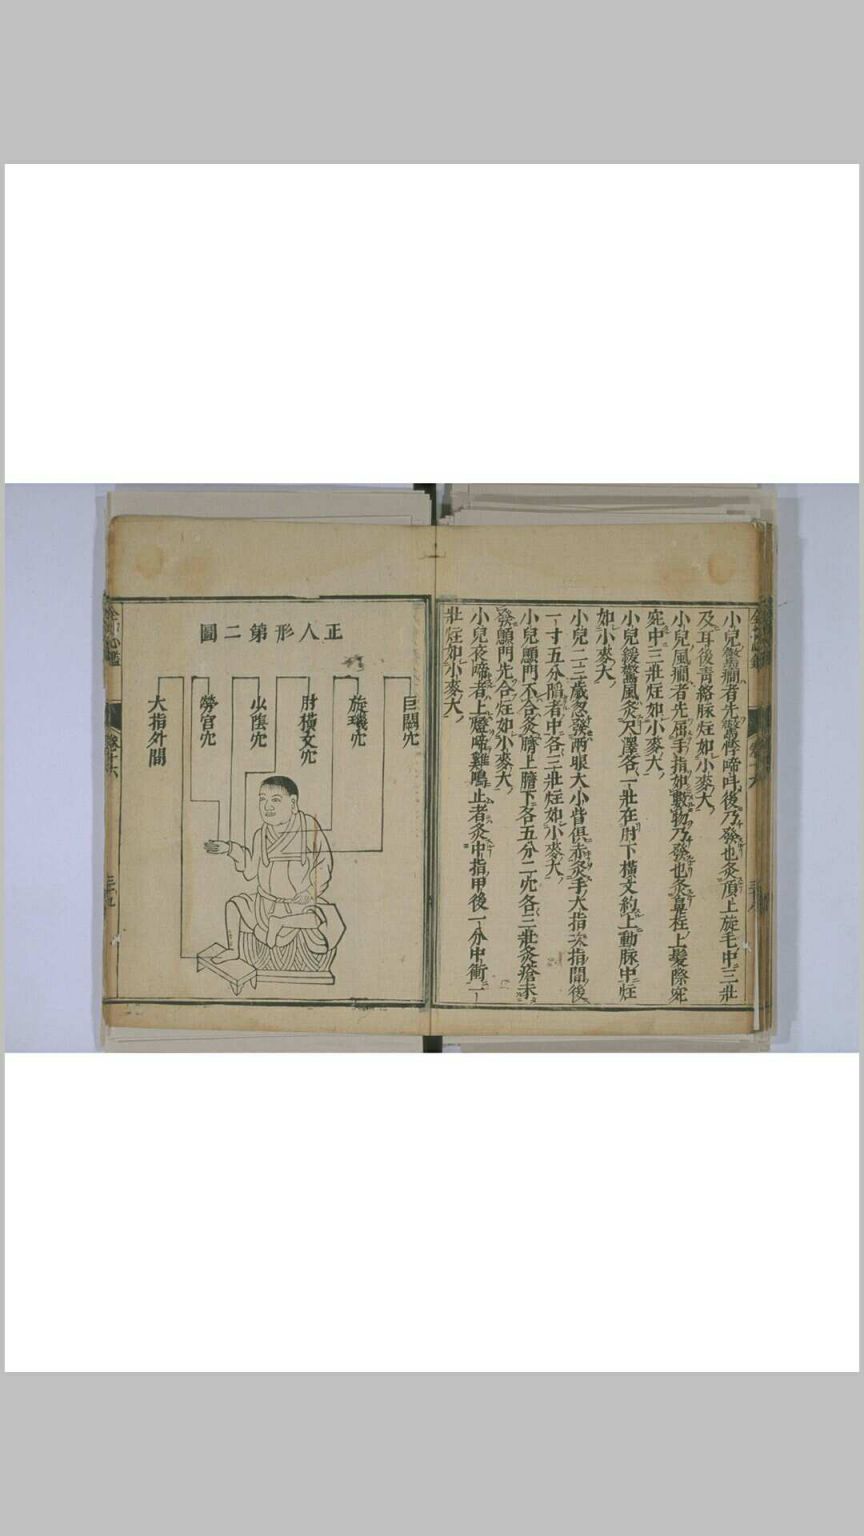 小兒驚癎者先驚悸啼呌後乃發也灸頂上旋毛中三壯
及耳後靑絡脉炷如小麥大
小兒風癎者先屈手指如數物乃發也灸鼻柱上髮際宛
宛中三壯炷如小麥大
小兒緩驚風灸尺澤各一壯在肘下橫文約上動脉中炷
如小麥大
小兒二三歲忽發兩眼大小眥俱赤灸手大指次指間後
一寸五分陷者中各三壯炷如小麥大
小兒顖門不合灸臍上臍下各五分二穴各三壯灸瘡未
發顖門先合炷如小麥大
小兒夜啼者上燈啼雞鳴止者灸中指甲後一分中衝一
壯炷如小麥大
正人形第二圖
巨闕穴
旋璣穴
肘橫文穴
少陰穴
勞宮穴
大指外間
全幼心鑑
卷十六